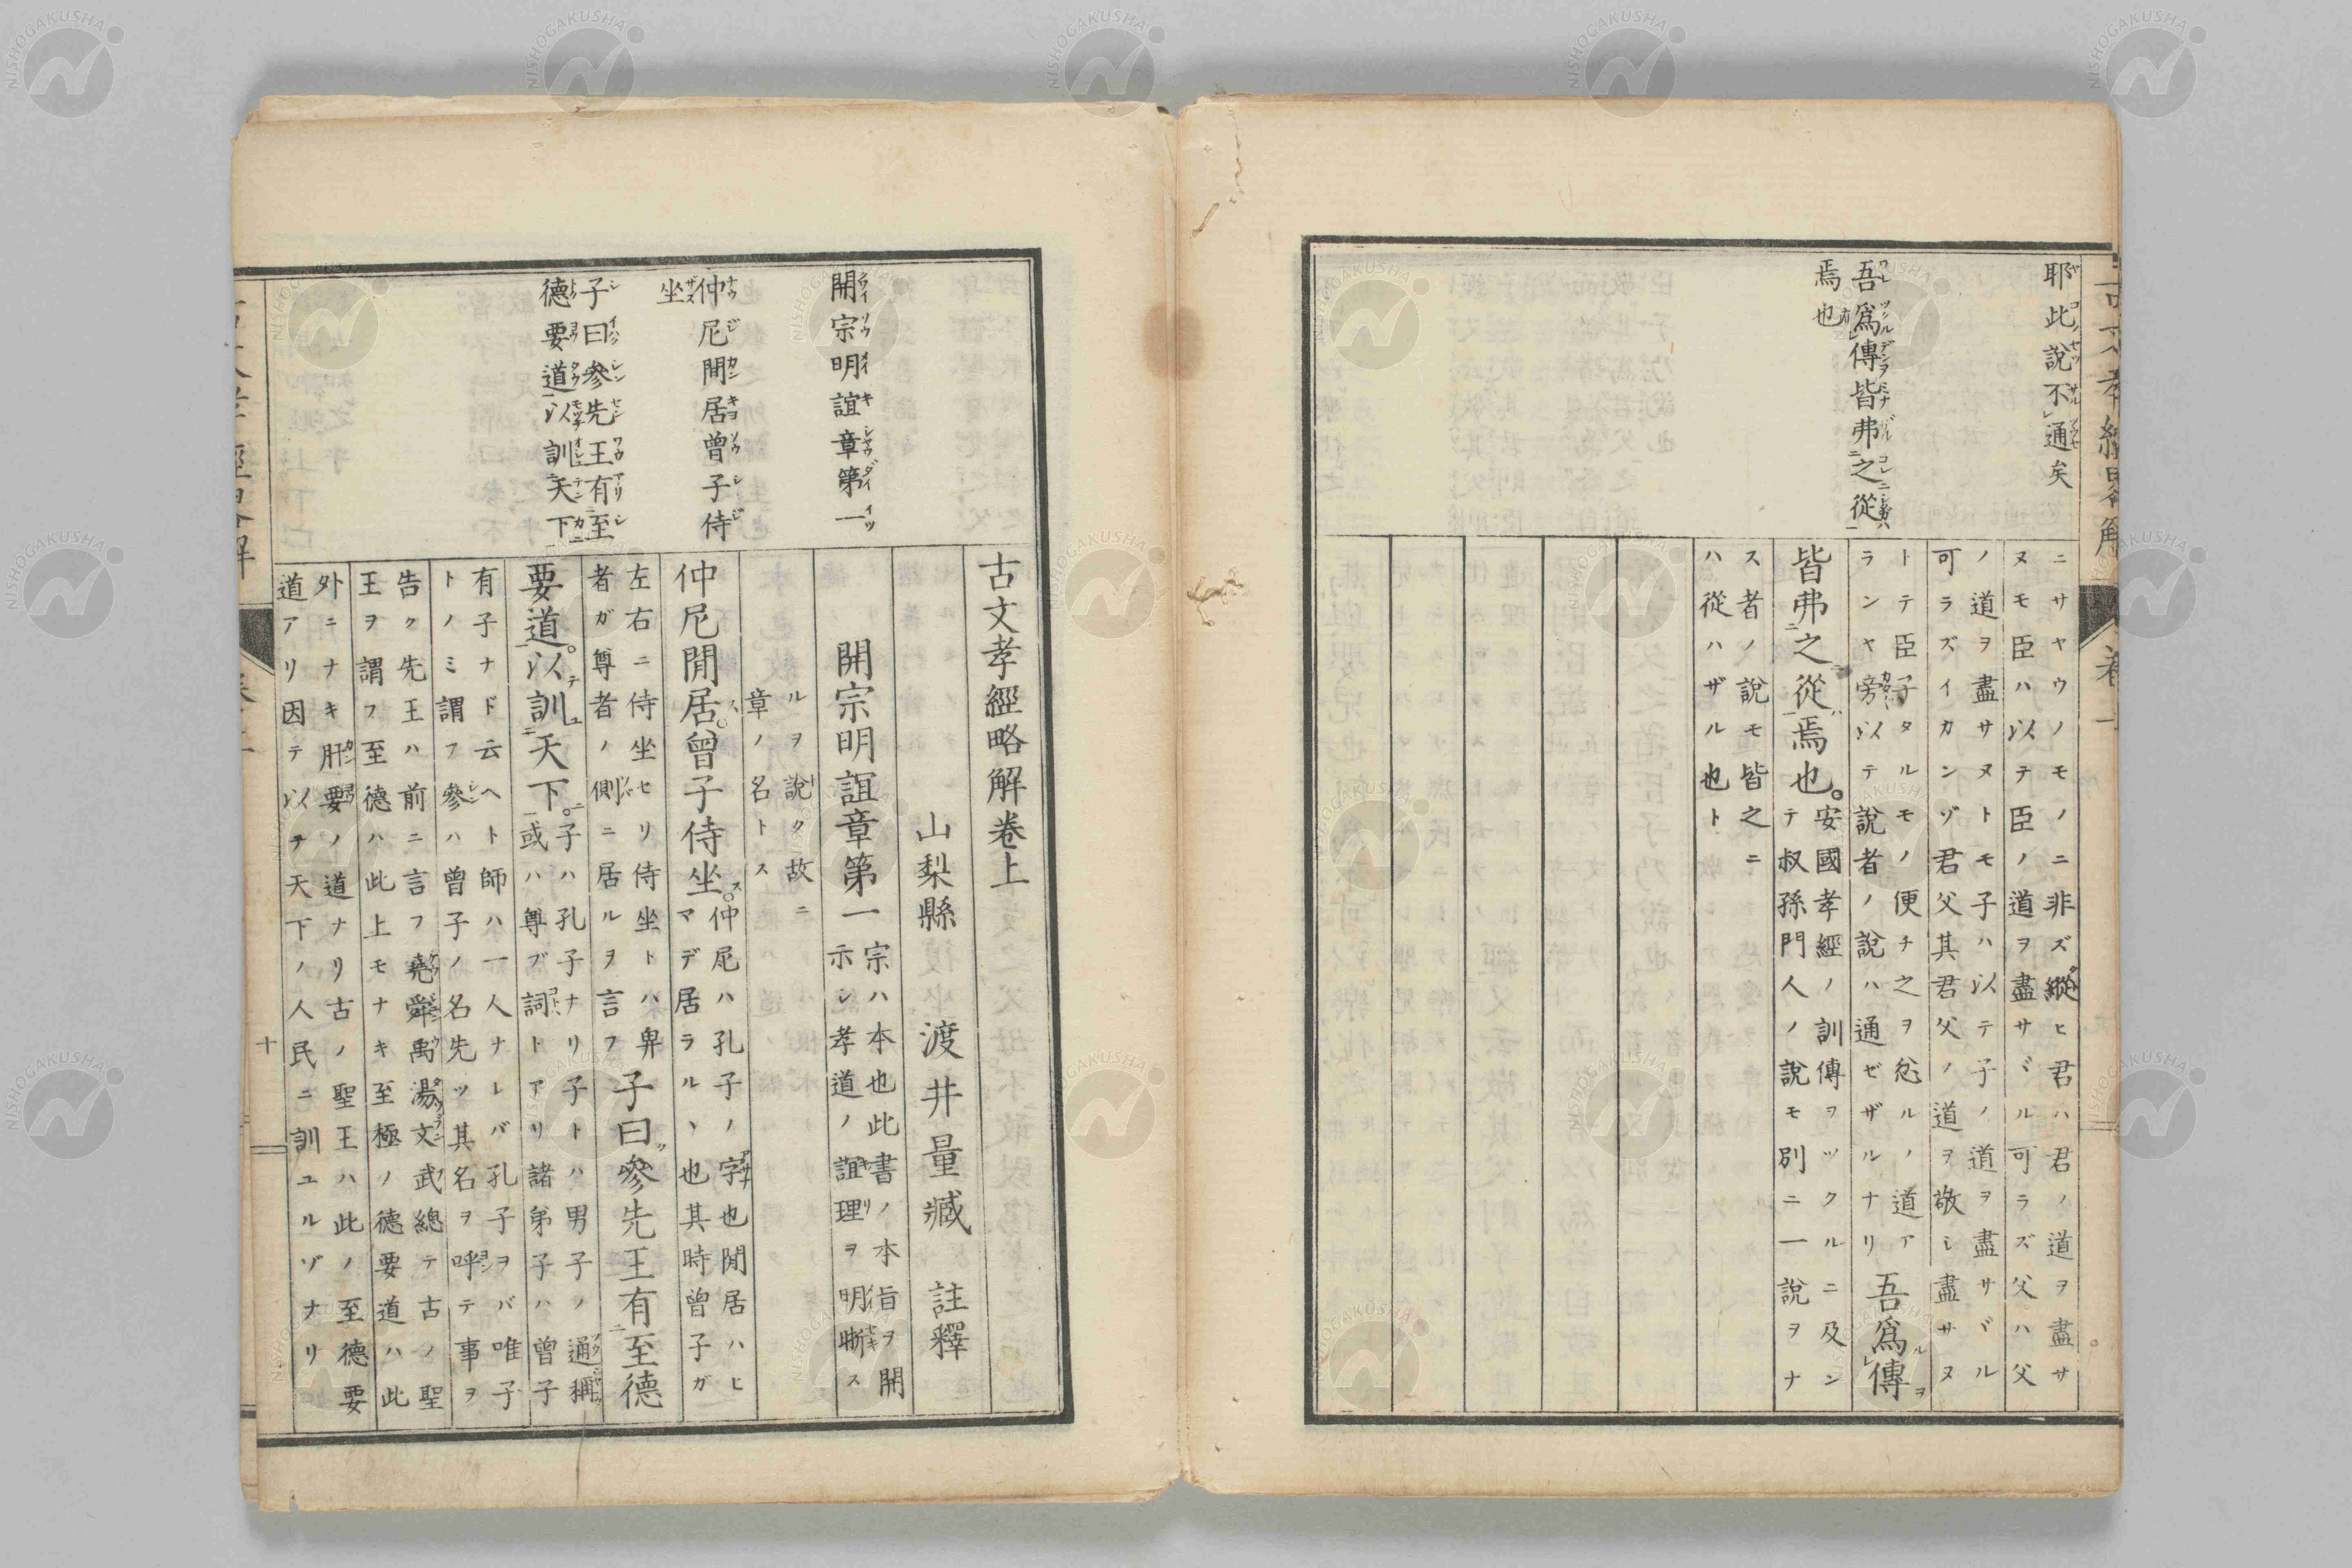 耶此說不通矣
吾爲傳皆弗之從
焉也
ニサヤウノモノニ非ズ縱ヒ君ハ君ノ道ヲ盡サ
ヌモ臣ハ以テ臣ノ道ヲ盡サヾル可ラズ父ハ父
ノ道ヲ盡サヌトモ子ハ以テ子ノ道ヲ盡サヾル
可ラズイカンゾ君父其君父ノ道ヲ敬シ盡サヌ
トテ臣子タルモノ便チ之ヲ忘ルノ道ア
ランヤ旁以テ說者ノ說ハ通ゼザルナリ
吾爲傳
皆弗之從焉也。
安國孝經ノ訓傳ヲツクルニ及ン
テ叔孫門人ノ說モ別ニ一說ヲナ
ス者ノ說モ皆之ニ
ハ從ハザル也ト
開宗明誼章第一
仲尼閒居曾子侍
坐
子曰參先王有至
德要道以訓天下
古文孝經略解卷上
山梨縣 渡井量臧 註釋
開宗明誼章第一
宗ハ本也此書ノ本旨ヲ開
示シ孝道ノ誼理ヲ明晰ス
ルヲ說ク故ニ
章ノ名トス
仲尼閒居。曾子侍坐。
仲尼ハ孔子ノ字也閒居ハヒ
マデ居ラルヽ也其時曾子ガ
左右ニ侍坐セリ侍坐トハ卑
者ガ尊者ノ側ニ居ルヲ言フ
子曰參先王有至德
要道。以訓天下。
子ハ孔子ナリ子トハ男子ノ通稱
或ハ尊ブ詞トアリ諸弟子ハ曾子
有子ナド云ヘト師ハ一人ナレバ孔子ヲバ唯子
トノミ謂フ參ハ曾子ノ名先ツ其名ヲ呼テ事ヲ
告ク先王ハ前ニ言フ堯舜禹湯文武總テ古ノ聖
王ヲ謂フ至德ハ此上モナキ至極ノ德要道ハ此
外ニナキ肝要ノ道ナリ古ノ聖王ハ此ノ至德要
道アリ因テ以テ天下ノ人民ニ訓ユルゾナリ
十